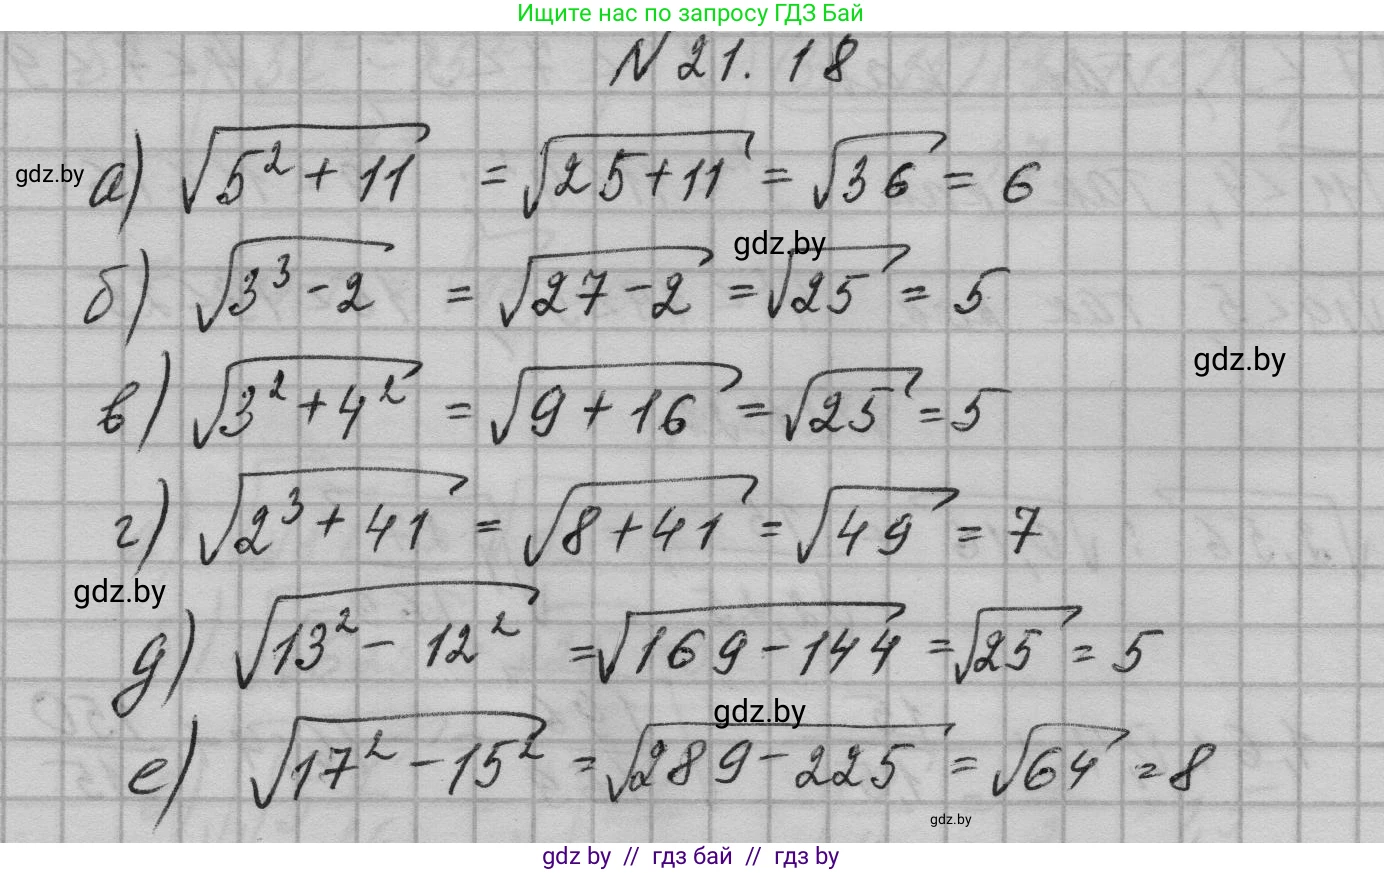 Ищите нас по запросу ГДЗ Бай
N 21. 18
gdz.by а) √(5² + 11) = √(25 + 11) = √36 = 6
gdz.by
б) √(3³ - 2) = √(27 - 2) = √25 = 5
gdz.by
в) √(3² + 4²) = √(9 + 16) = √25 = 5
г) √(2³ + 41) = √(8 + 41) = √49 = 7
gdz.by
д) √(13² - 12²) = √(169 - 144) = √25 = 5
gdz.by
е) √(17² - 15²) = √(289 - 225) = √64 = 8
gdz.by
gdz by // гдз бай // гдз by